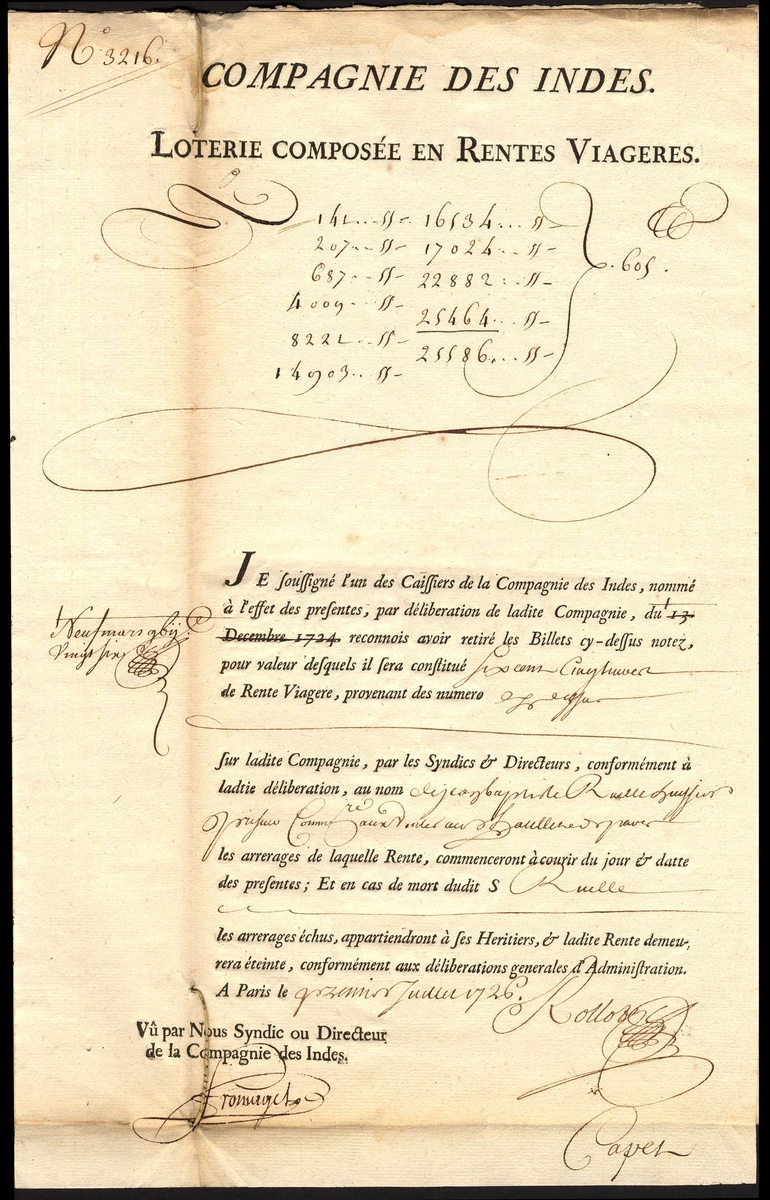 N° 3216.
COMPAGNIE DES INDES.
LOTERIE COMPOSÉE EN RENTES VIAGERES.
141 16534
207 17024
687 22882
4009 25464
8221 25586
14903
605.
JE ſouſſigné l'un des Caiſſiers de la Compagnie des Indes, nommé
à l'effet des preſentes, par déliberation de ladite Compagnie, du 13
Decembre 1724. reconnois avoir retiré les Billets cy-deſſus notez,
pour valeur deſquels il ſera conſtitué six cent Cinq livres
de Rente Viagere, provenant des numero
Neuf mars
Vingt six
ſur ladite Compagnie, par les Syndics & Directeurs, conformément à
ladtie déliberation, au nom de jean baptiste Ruelle huissier
priseur
les arrerages de laquelle Rente, commenceront à courir du jour & datte
des preſentes; Et en cas de mort dudit S Ruelle
les arrerages échus, appartiendront à ſes Heritiers, & ladite Rente demeu-
rera éteinte, conformément aux déliberations generales d'Adminiſtration.
A Paris le premier Juillet 1726.
Vû par Nous Syndic ou Directeur
de la Compagnie des Indes.
Fromaget